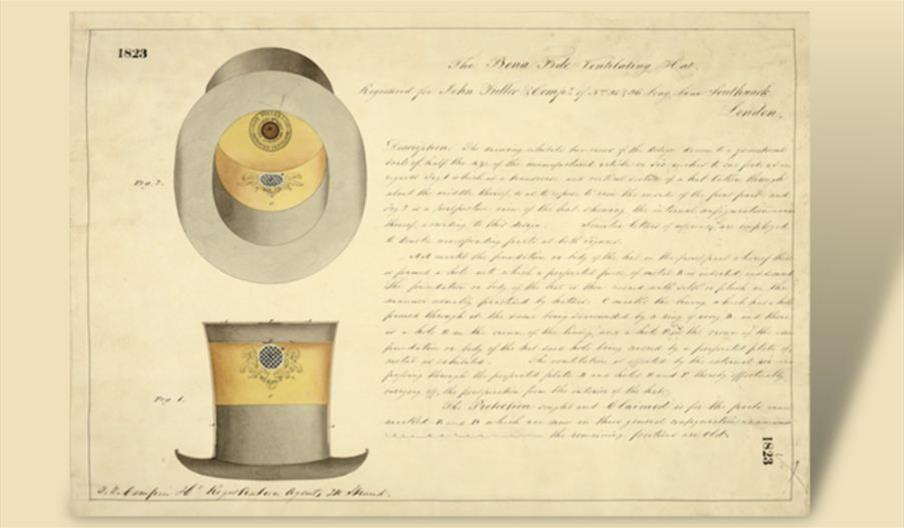 1823
The Bona Fide Ventilating Hat.
Registered for John Fuller & Compy. of Nos. 95 & 96 Long Lane Southwark
London.
Description. The drawing exhibits two views of the design drawn to a geometrical
scale of half the size of the manufactured article or six inches to one foot, as in
figures Fig. 1 which is a transverse and vertical section of a hat taken through
about the middle thereof, so as to expose to view the inside of the front part and
Fig. 2 is a perspective view of the hat, shewing the internal configuration
thereof according to this design. Similar letters of reference are employed
to denote corresponding parts at both figures.
the foundation or body of the hat in the front part whereof there
is formed a hole into which a perforated piece of metal B is inserted
The foundation or body of the hat is then covered with silk or plush in the
manner usually practised by hatters. C marks the lining which has a hole
formed through it the same being surrounded by a ring of D and there
is a hole E in the crown of the lining and a hole in the crown of the
foundation or body of the hat said hole being covered by a perforated plate of
metal as exhibited. The ventilation is effected by the external air
passing through the perforated plate B and holes and thereby effectually
carrying off the perspiration from the interior of the hat.
The Protection sought and Claimed is for the parts
marked B and D which are new in their general configuration
the remaining portions are old.
Fig. 2.
Fig. 1.
1823
Registration Agents, Strand.